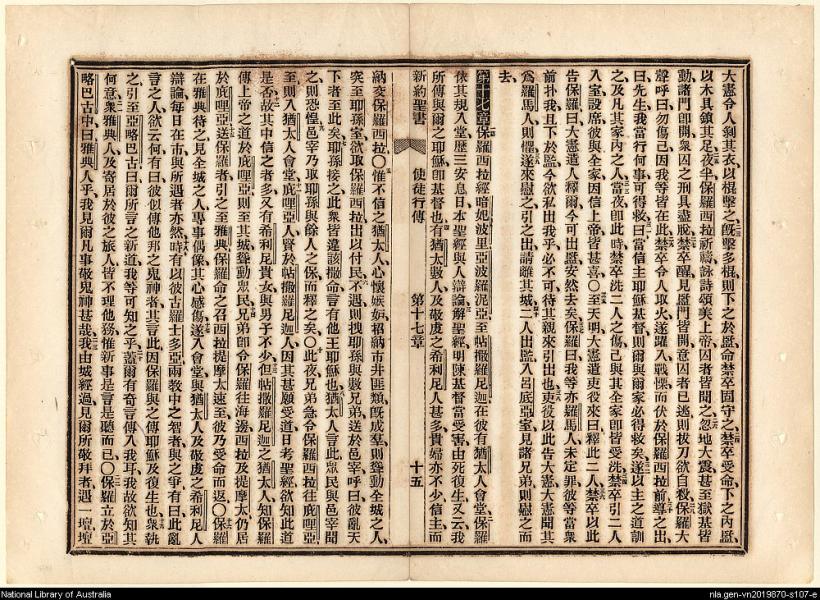 大憲令人剝其衣以棍擊之旣擊多棍則下之於監命禁卒固守之禁卒受命下之內監
以木具鎖其足夜半保羅西拉祈禱詠詩頌美上帝囚者皆聞之忽地大震甚至獄基皆
動諸門卽開衆囚之刑具盡脫禁卒醒見監門皆開意囚者已逃則拔刀欲自殺保羅大
聲呼曰勿傷己因我等皆在此禁卒令人取火遂躍入戰慄而伏於保羅西拉前導之出
曰先生我當行何事可得救曰當信主耶穌基督則爾與爾家必得救矣遂以主之道訓
之及凡其家內之人當夜卽此時禁卒洗二人之傷己與其全家卽皆受洗禁卒引二人
入室設席彼與全家因信上帝皆甚喜○至天明大憲遣吏役來曰釋此二人禁卒以此
告保羅曰大憲遣人釋爾今可出監安然去矣保羅曰我等亦羅馬人未定罪彼等當衆
前扑我且下於監今欲私出我乎必不可待其親來引出也吏役以此告大憲大憲聞其
爲羅馬人則懼遂來慰之引之出請離其城二人出監入呂底亞室見諸兄弟則慰之而
去
第十七章保羅西拉經暗妑波里亞波羅泥亞至帖撒羅尼迦在彼有猶太人會堂保羅
依其規入堂歷三安息日本聖經與人辯論解聖經明陳基督當受害由死復生又云我
所傳與爾之耶穌卽基督也有猶太數人及敬虔之希利尼人甚多貴婦亦不少信主而
新約聖書 使徒行傳 第十七章 十五
納交保羅西拉○惟不信之猶太人心懷嫉妒招納市井匪類旣成羣則聳動全城之人
突至耶孫室欲取保羅西拉出以付民不遇則拽耶孫與數兄弟送於邑宰呼曰彼亂天
下者至此矣耶孫接之此衆皆違該撒命言有他王耶穌也猶太人言此衆民與邑宰聞
之則恐惶邑宰乃取耶孫與餘人之保而釋之矣○此夜兄弟急令保羅西拉往庇哩亞
至則入猶太人會堂庇哩亞人賢於帖撒羅尼迦人因其甚願受道日考聖經欲知此道
是否故其中信之者多又有希利尼貴女與男子不少但帖撒羅尼迦之猶太人知保羅
傳上帝之道於庇哩亞則至其城聳動衆民兄弟卽令保羅往海邊西拉及提摩太仍居
於庇哩亞送保羅者引之至雅典保羅命之召西拉提摩太速至彼乃受命而返○保羅
在雅典待之見全城之人專事偶像其心感傷遂入會堂與猶太人及敬虔之希利尼人
辯論每日在市與所遇者亦然時有以彼古羅士多亞兩教中之智者與之爭有曰此亂
言之人欲云何有曰彼似傳他邦之鬼神者其言此因保羅與之傳耶穌及復生也衆執
之引至亞略巴古曰爾所言之新道我等可知之乎蓋爾有奇言傳入我耳我故欲知其
何意衆雅典人及寄居於彼之旅人皆不理他務惟新事是言是聽而已○保羅立於亞
略巴古中曰雅典人乎我見爾凡事敬鬼神甚哉我由城經過見爾所敬拜者遇一壇壇
National Library of Australia
nla.gen-vn2019870-s107-e